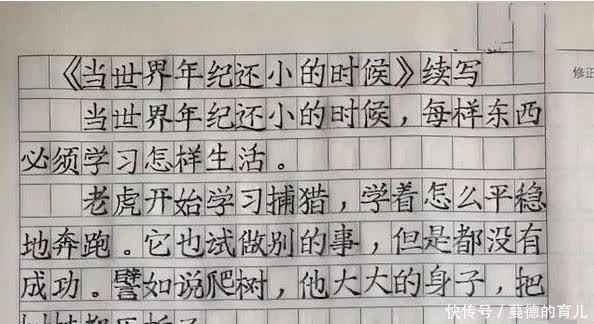 《当世界年纪还小的时候》续写
修正
当世界年纪还小的时候，每样东西
必须学习怎样生活。
老虎开始学习捕猎，学着怎么平稳
地奔跑。它也试做别的事，但是都没有
成功。譬如说爬树，他大大的身子，把
快传号/蔓德的育儿